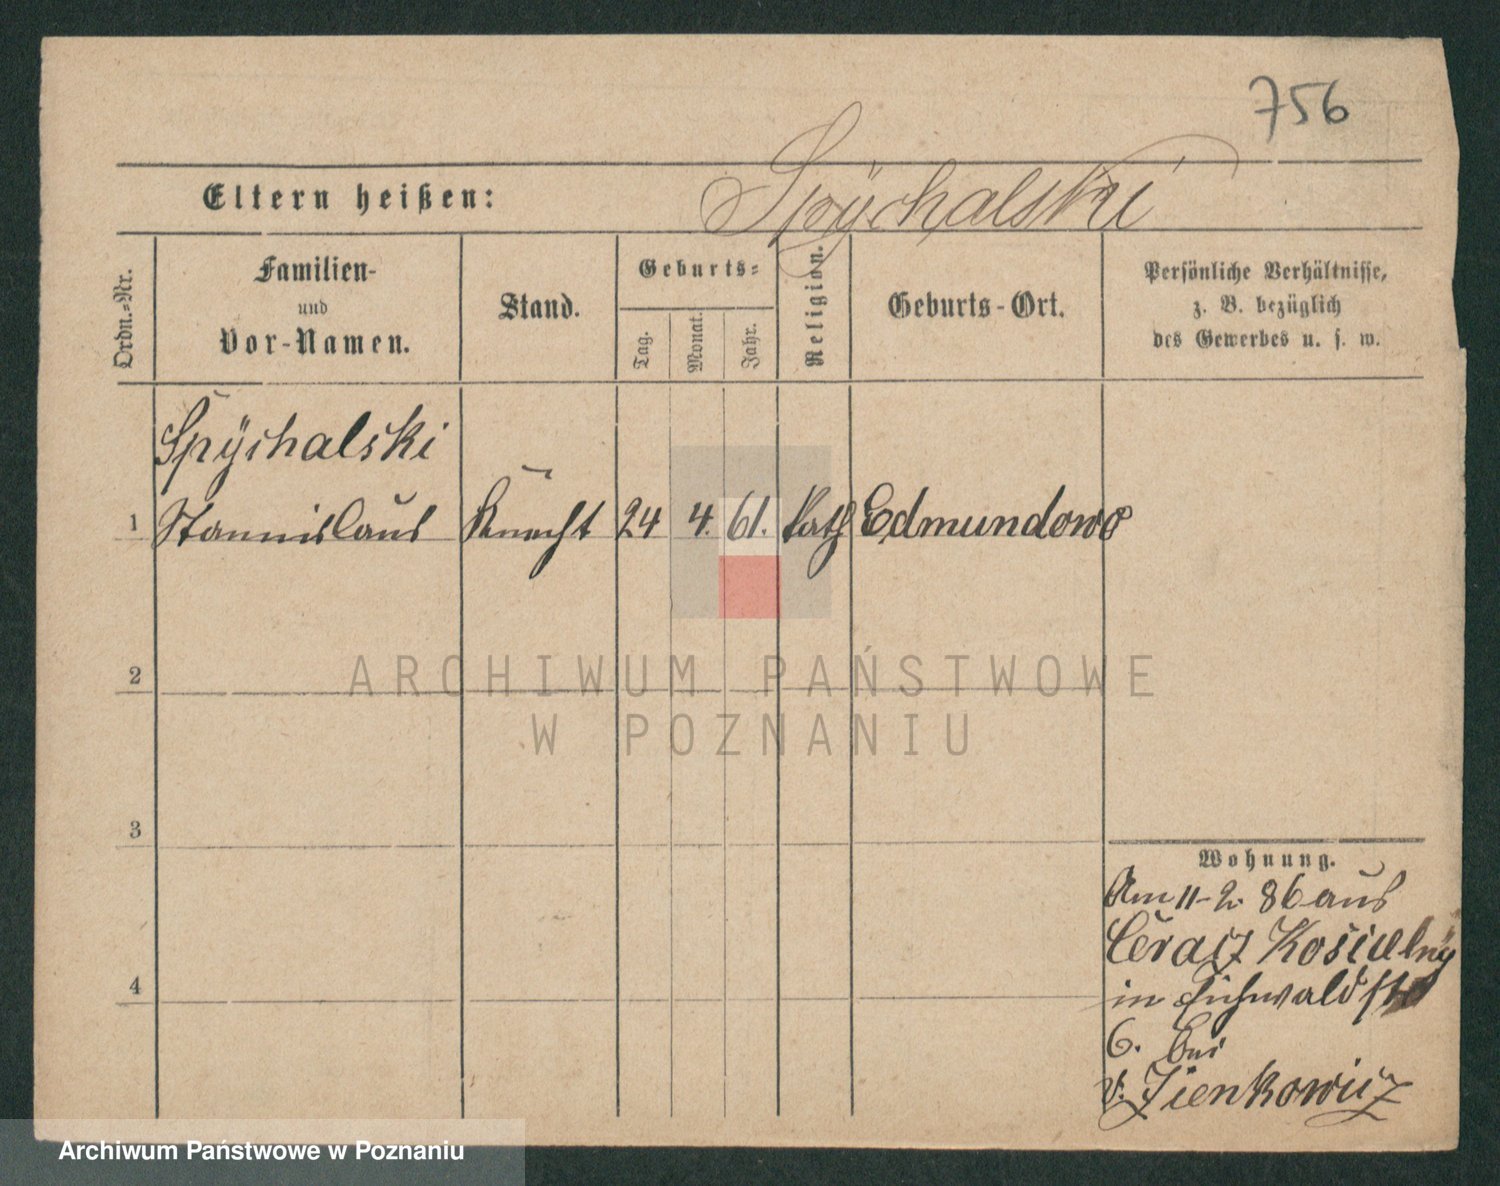 756
Eltern heißen: Spÿchalski
Ordn.-Nr.
Familien-
und
Vor-Namen.
Stand.
Geburts-
Tag.
Monat.
Jahr.
Religion.
Geburts-Ort.
Persönliche Verhältnisse,
z. B. bezüglich
des Gewerbes u. s. w.
Spÿchalski
1 Stannislaus Knecht 24 4. 61. Kath Edmundowo
2
3
4
Wohnung.
Am 11-2. 86 aus
Ceracz Kościelny
in Eichwaldstr
6. bei
v. Zienkowicz
ARCHIWUM PAŃSTWOWE
W POZNANIU
Archiwum Państwowe w Poznaniu